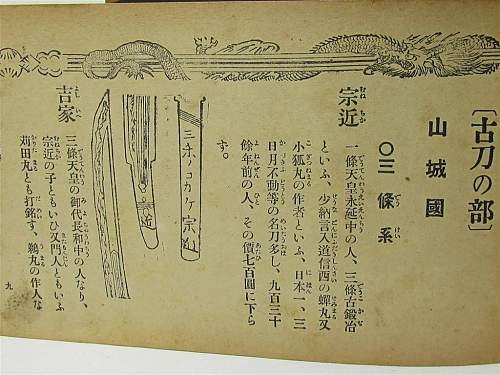 〔古刀の部〕
山城國
〇三條系
宗近
一條天皇永延中の人、三條古鍛冶
といふ、少納言入道信西の蟬丸又
小狐丸の作者といふ、日本一、三
日月不動等の名刀多し、九百三十
餘年前の人、その價七百圓に下ら
ず。
吉家
三條天皇の御代長和中の人なり、
宗近の子ともいひ又門人ともいふ
苅田丸とも打銘す、鵜丸の作人な
九